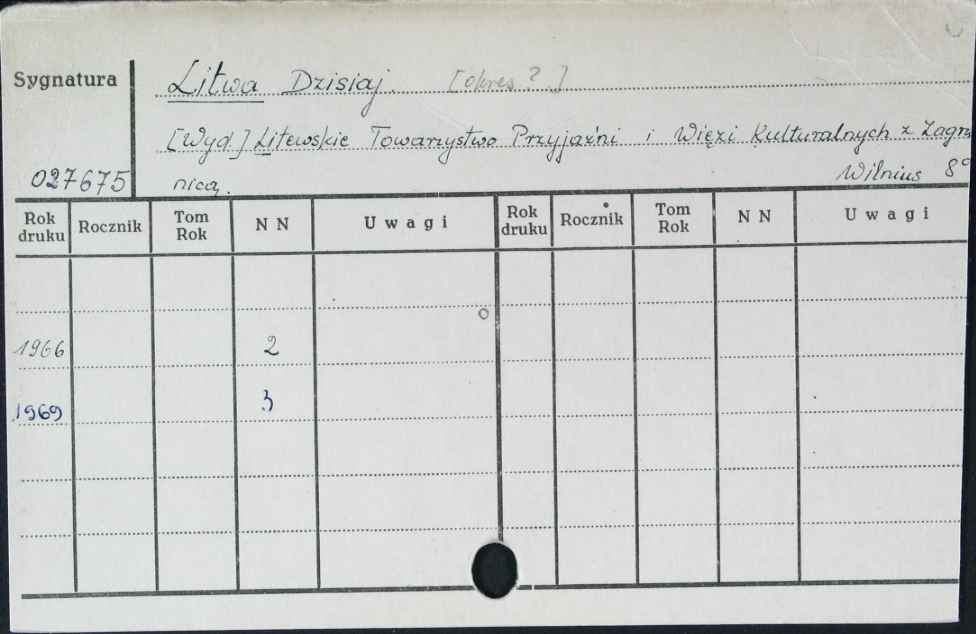 Sygnatura
Litwa Dzisiaj. [okres?]
[Wyd.] Litewskie Towarzystwo Przyjaźni i Więzi Kulturalnych z Zagra
027675 nicą. Wilnius 8°
Rok druku Rocznik Tom Rok NN Uwagi Rok druku Rocznik Tom Rok NN Uwagi
1966 2
1969 3